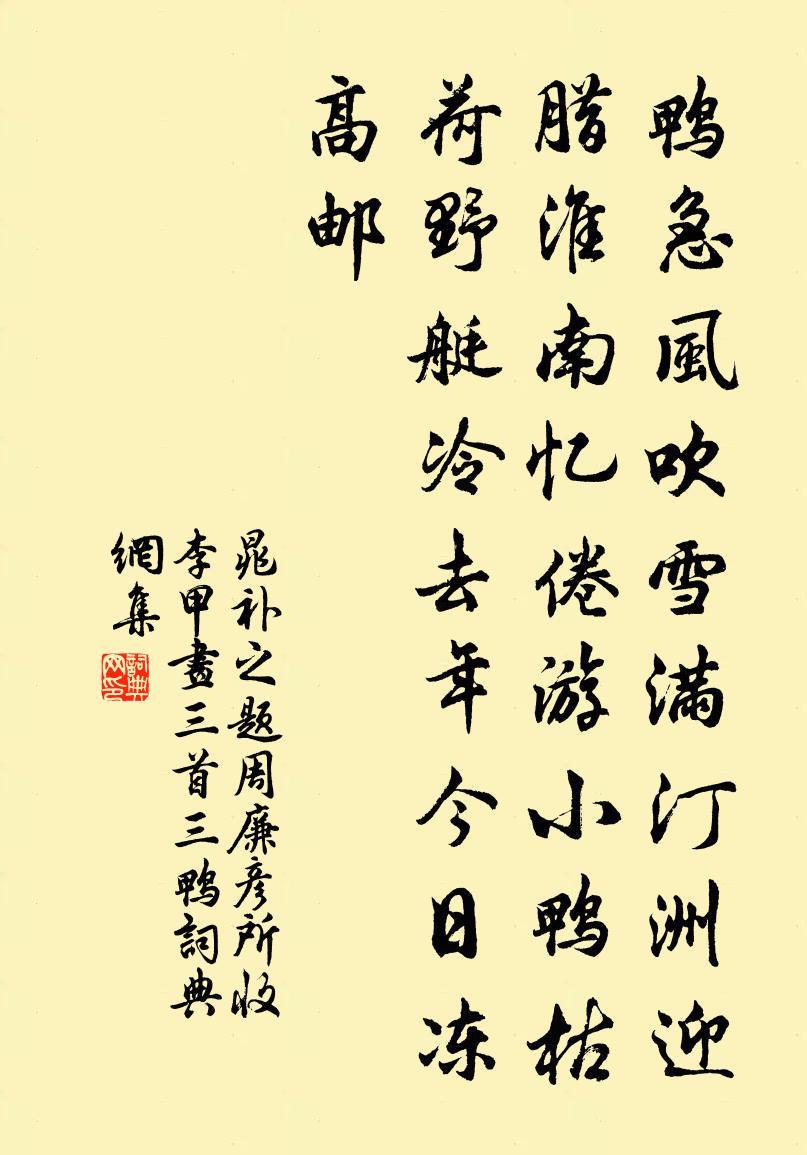 鸭急風吹雪满汀洲迎
腊淮南忆倦游小鸭枯
荷野艇冷去年今日冻
高邮
晁补之题周廉彦所收
李甲畫三首三鸭詞典
網集
詞典
网印